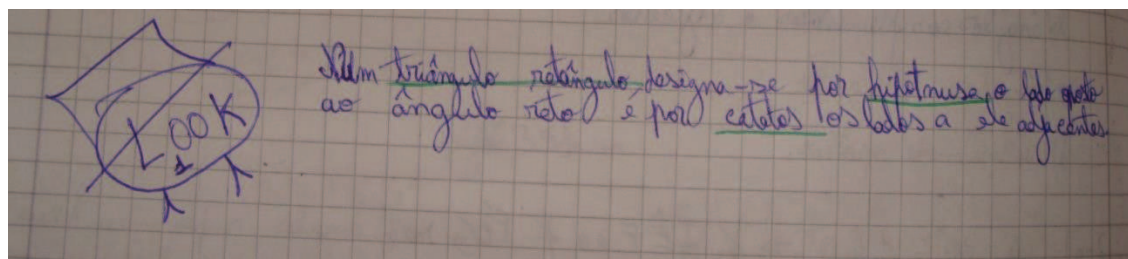 LOOK
Num triângulo retângulo, designa-se por hipotnusa, o lado oposto
ao ângulo reto é por catetos os lados a ele adjacentes